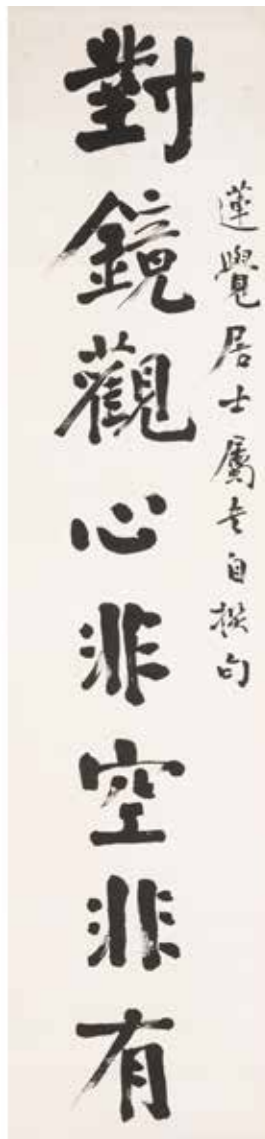 蓮覺居士屬書自撰句
對鏡觀心非空非有